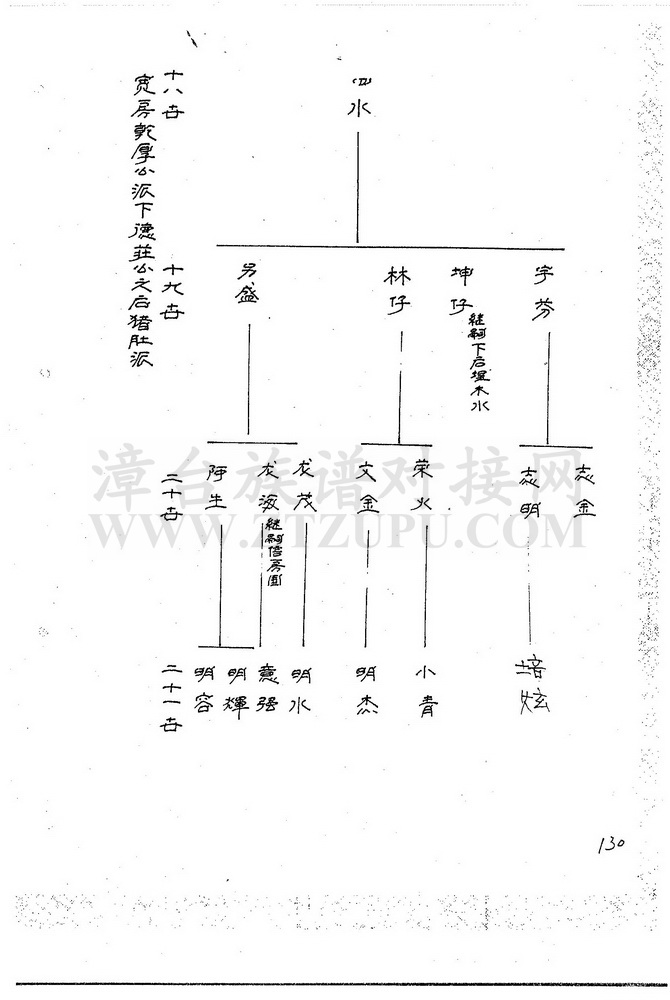 宽房乾厚公派下德莊公之后猪肚派
十八世
(四)
水
十九世
另盛
林仔
坤仔
继嗣下后堀木水
宇芬
二十世
阿生
龙海
继嗣偕房圍
龙茂
文金
荣火
志明
志金
漳台族谱对接网
WWW.ZTZUPU.COM
二十一世
明容
明輝
意强
明水
明杰
小青
培炫
130